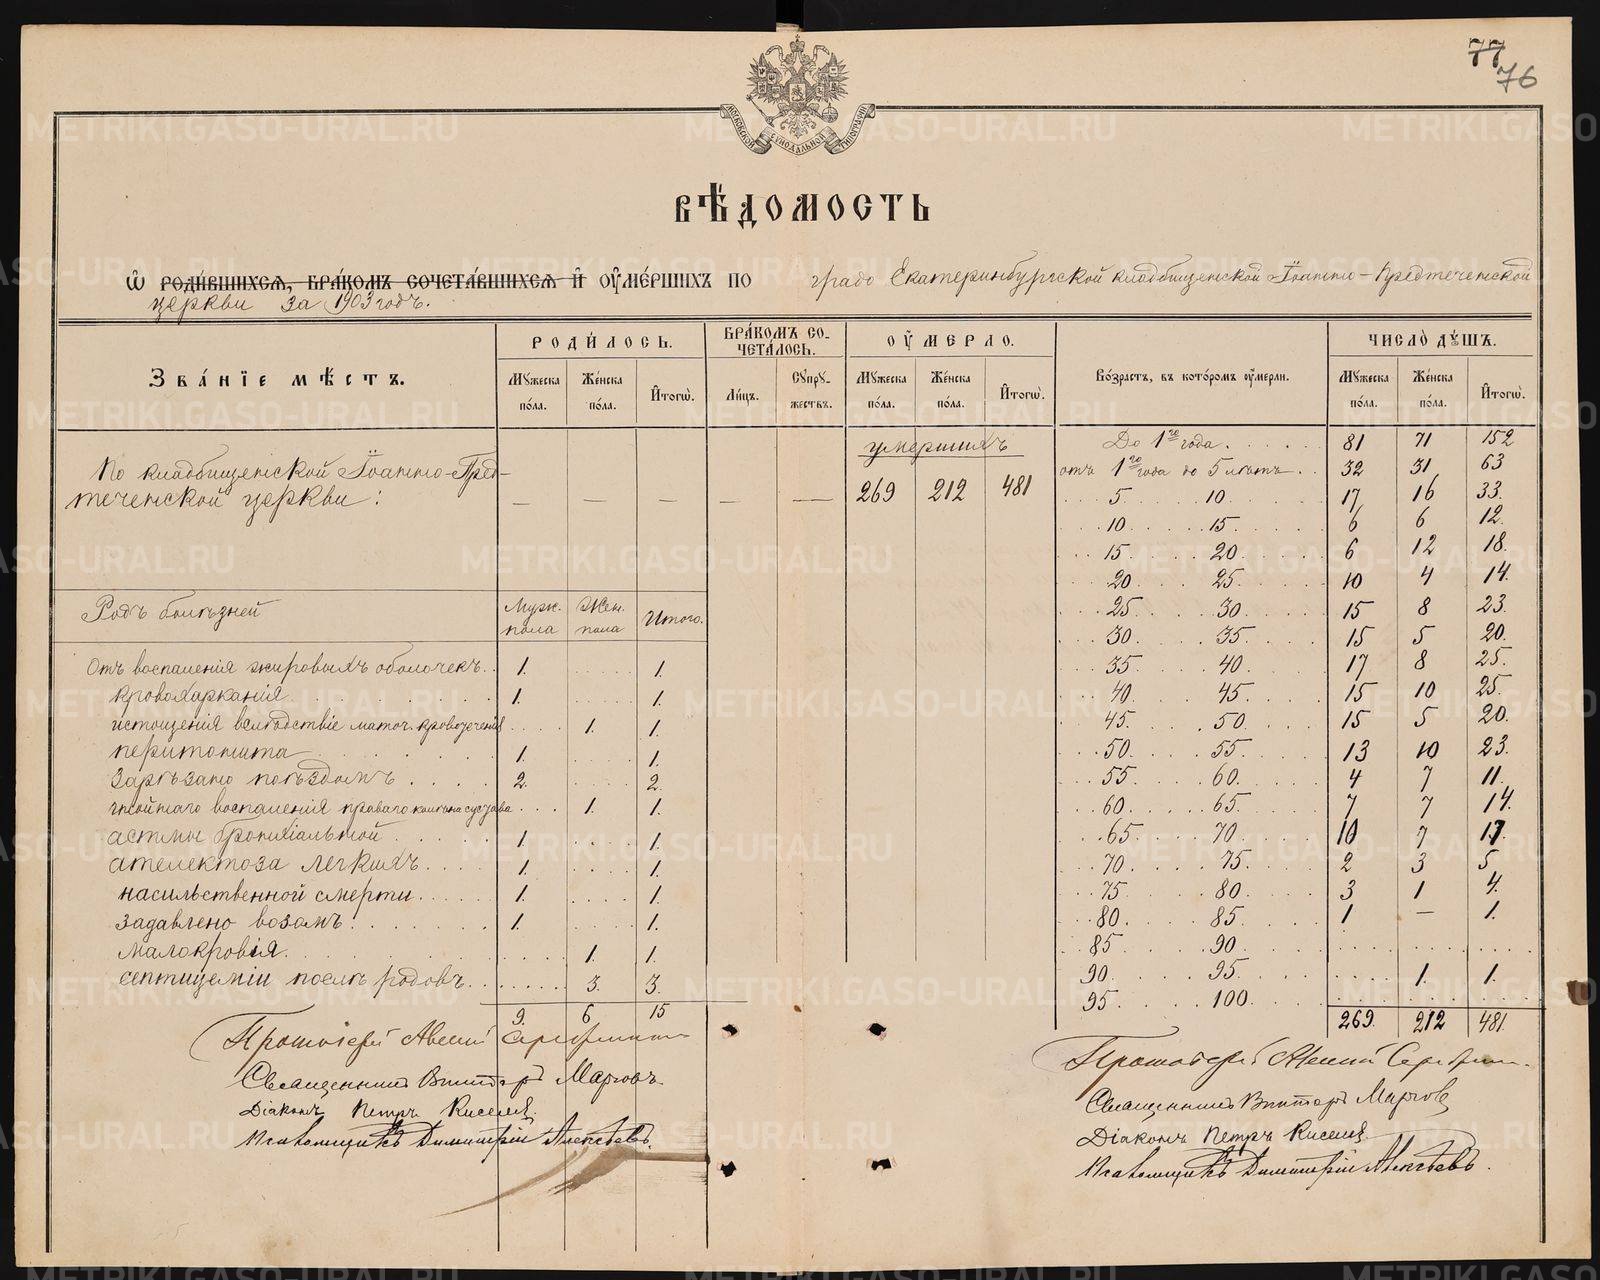 77
76
МОСКОВСКОЙ СѴНОДАЛЬНОЙ ТИПОГРАФІИ
ВѢДОМОСТЬ
Ѡ РОДИВШИХСЯ, БРАКОМЪ СОЧЕТАВШИХСЯ И ОУМЕРШИХЪ ПО градо Екатеринбургской кладбищенской Іоанно-Предтеченской
церкви за 1903 годъ.
ЗВАНІЕ МѢСТЪ. РОДИЛОСЬ. БРАКОМЪ СОЧЕТАЛОСЬ. ОУМЕРЛО. Возрастъ, въ которомъ оумерли. ЧИСЛО ДУШЪ.
Мужеска пола. Женска пола. Итогѡ. Лицъ. Супружествъ. Мужеска пола. Женска пола. Итогѡ. Мужеска пола. Женска пола. Итогѡ.
умершихъ
По кладбищенской Іоанно-Пред-
теченской церкви: — — — — — 269 212 481
Родъ болѣзней Муж. пола Жен. пола Итого.
Отъ воспаленія жировыхъ оболочекъ. 1. 1.
кровохарканія 1. 1.
истощенія вслѣдствіе маточ. кровотеченія 1. 1.
перитонита 1. 1.
Зарѣзано поѣздомъ 2. 2.
гнойнаго воспаленія праваго колѣна сустава 1. 1.
астмы бронхіальной 1. 1.
ателектоза легкихъ 1. 1.
насильственной смерти 1. 1.
задавлено возомъ 1. 1.
малокровія 1. 1.
септицеміи послѣ родовъ 3. 3.
9. 6 15
Протоіерей
Священникъ Викторъ
Діаконъ Петръ Киселев
Псаломщикъ Димитрій Алексѣевъ.
До 1го года 81 71 152
отъ 1го года до 5 лѣтъ 32 31 63
5 10 17 16 33.
10 15 6 6 12.
15 20 6 12 18.
20 25 10 4 14.
25 30 15 8 23.
30 35 15 5 20.
35 40 17 8 25.
40 45 15 10 25.
45 50 15 5 20.
50 55 13 10 23.
55 60 4 7 11.
60 65 7 7 14.
65 70 10 7 17.
70 75 2 3 5.
75 80 3 1 4.
80 85 1 — 1.
85 90
90 95 1. 1.
95 100
269. 212 481.
Протоіерей
Священникъ Викторъ
Діаконъ Петръ Киселев
Псаломщикъ Димитрій Алексѣевъ.
METRIKI.GASO-URAL.RU